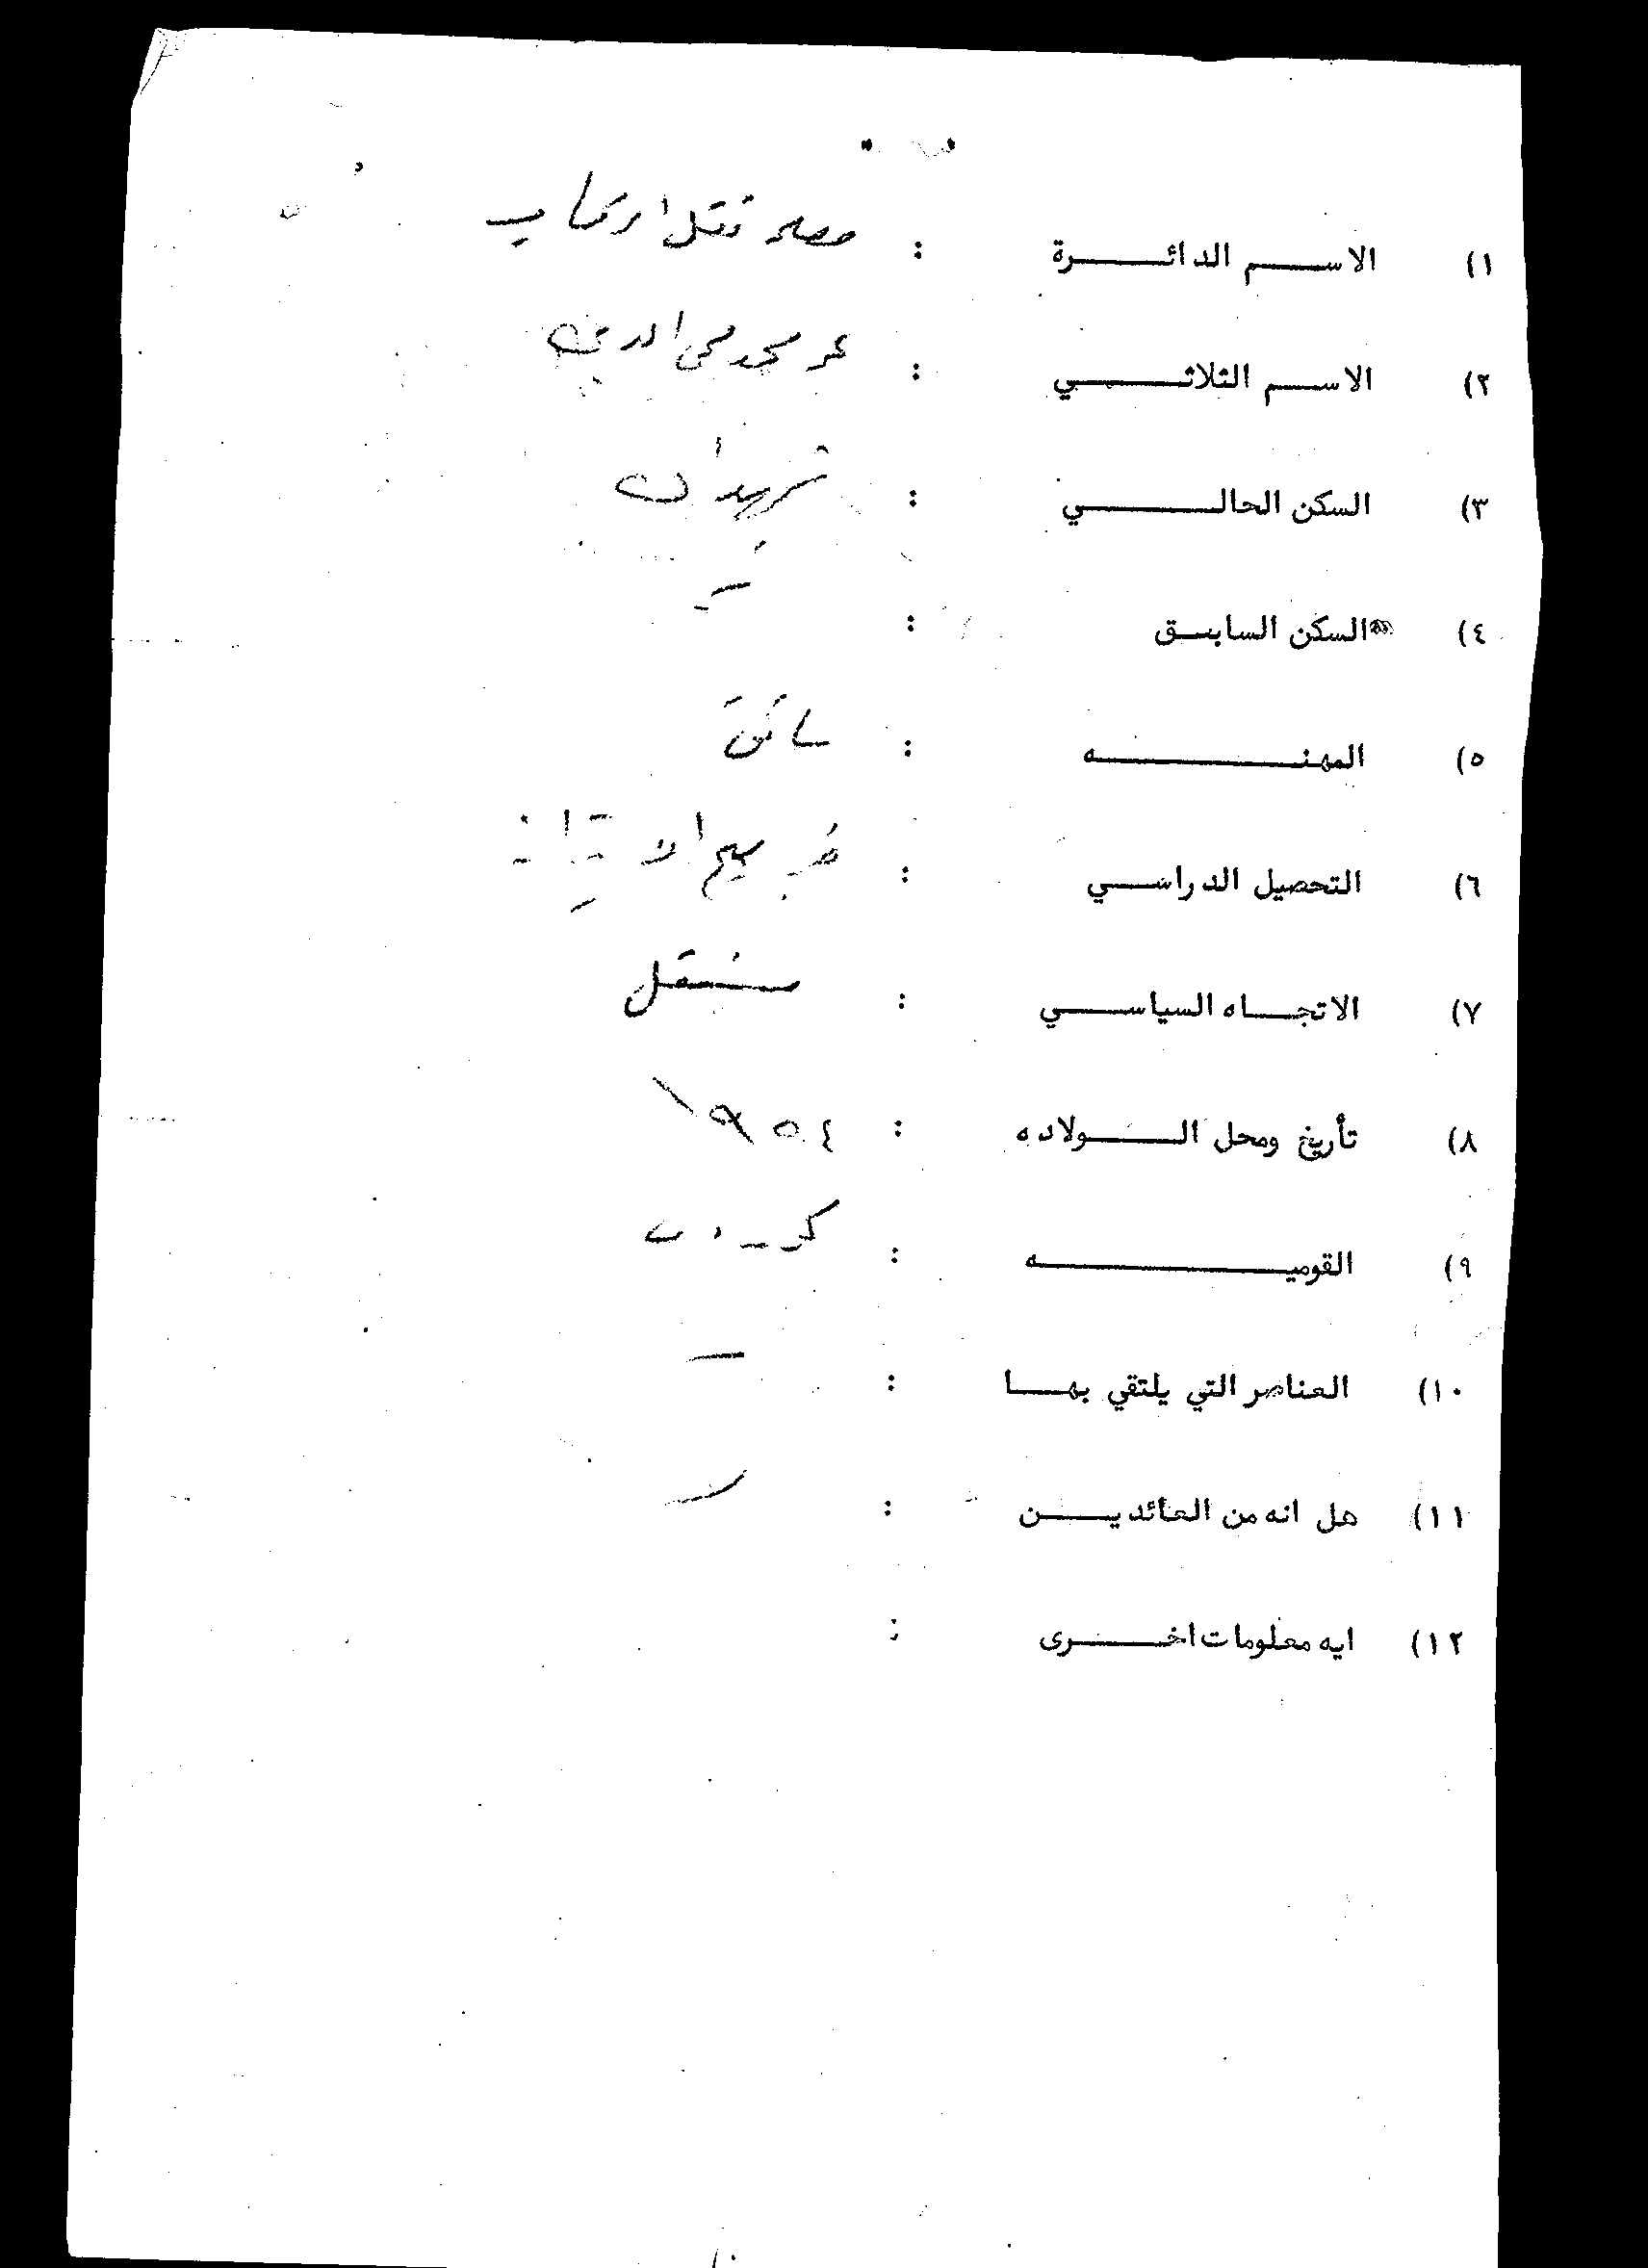 ١) الاسم الدائرة : مصلحة نقل الركاب
٢) الاسم الثلاثي : عمر محمد محي الدين
٣) السكن الحالي :
٤) السكن السابق : –
٥) المهنه : سائق
٦) التحصيل الدراسي : خريج الابتدائية
٧) الاتجاه السياسي : مستقل
٨) تأريخ ومحل الولاده : ١٩٥٤
٩) القوميه : كردي
١٠) العناصر التي يلتقي بها : –
١١) هل انه من العائدين :
١٢) ايه معلومات اخرى :